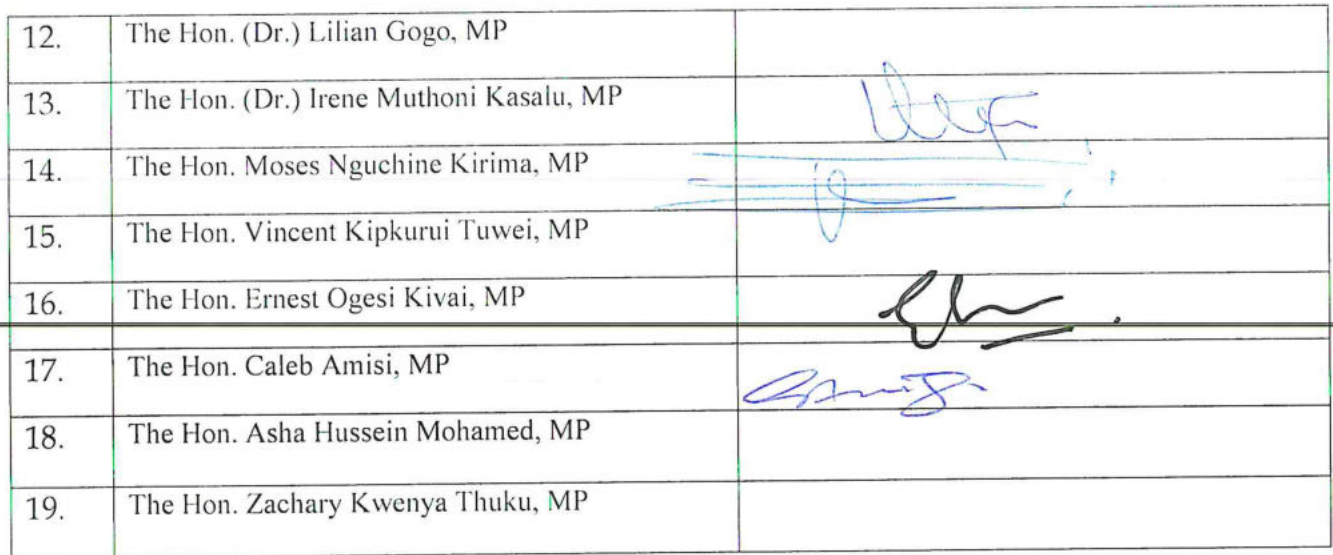 12. The Hon. (Dr.) Lilian Gogo, MP
13. The Hon. (Dr.) Irene Muthoni Kasalu, MP
14. The Hon. Moses Nguchine Kirima, MP
15. The Hon. Vincent Kipkurui Tuwei, MP
16. The Hon. Ernest Ogesi Kivai, MP
17. The Hon. Caleb Amisi, MP
18. The Hon. Asha Hussein Mohamed, MP
19. The Hon. Zachary Kwenya Thuku, MP